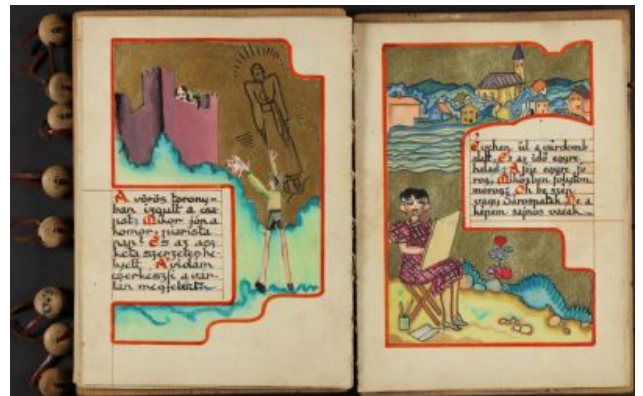 A vörös torony=
ban izgult a csa
pat; Mikor jön a
komor, purista
pap? És az asz
kéta szerzetes he
lyett, A vidám
cserkészfi a vár
fán megjelent.
Évchen ül a várdomb
alatt, És az idő egyre
halad; A feje egyre fő
rog, Miközben folyton
morog; Oh be szép
vagy Sárospatak De a
képem sajnos vacak.